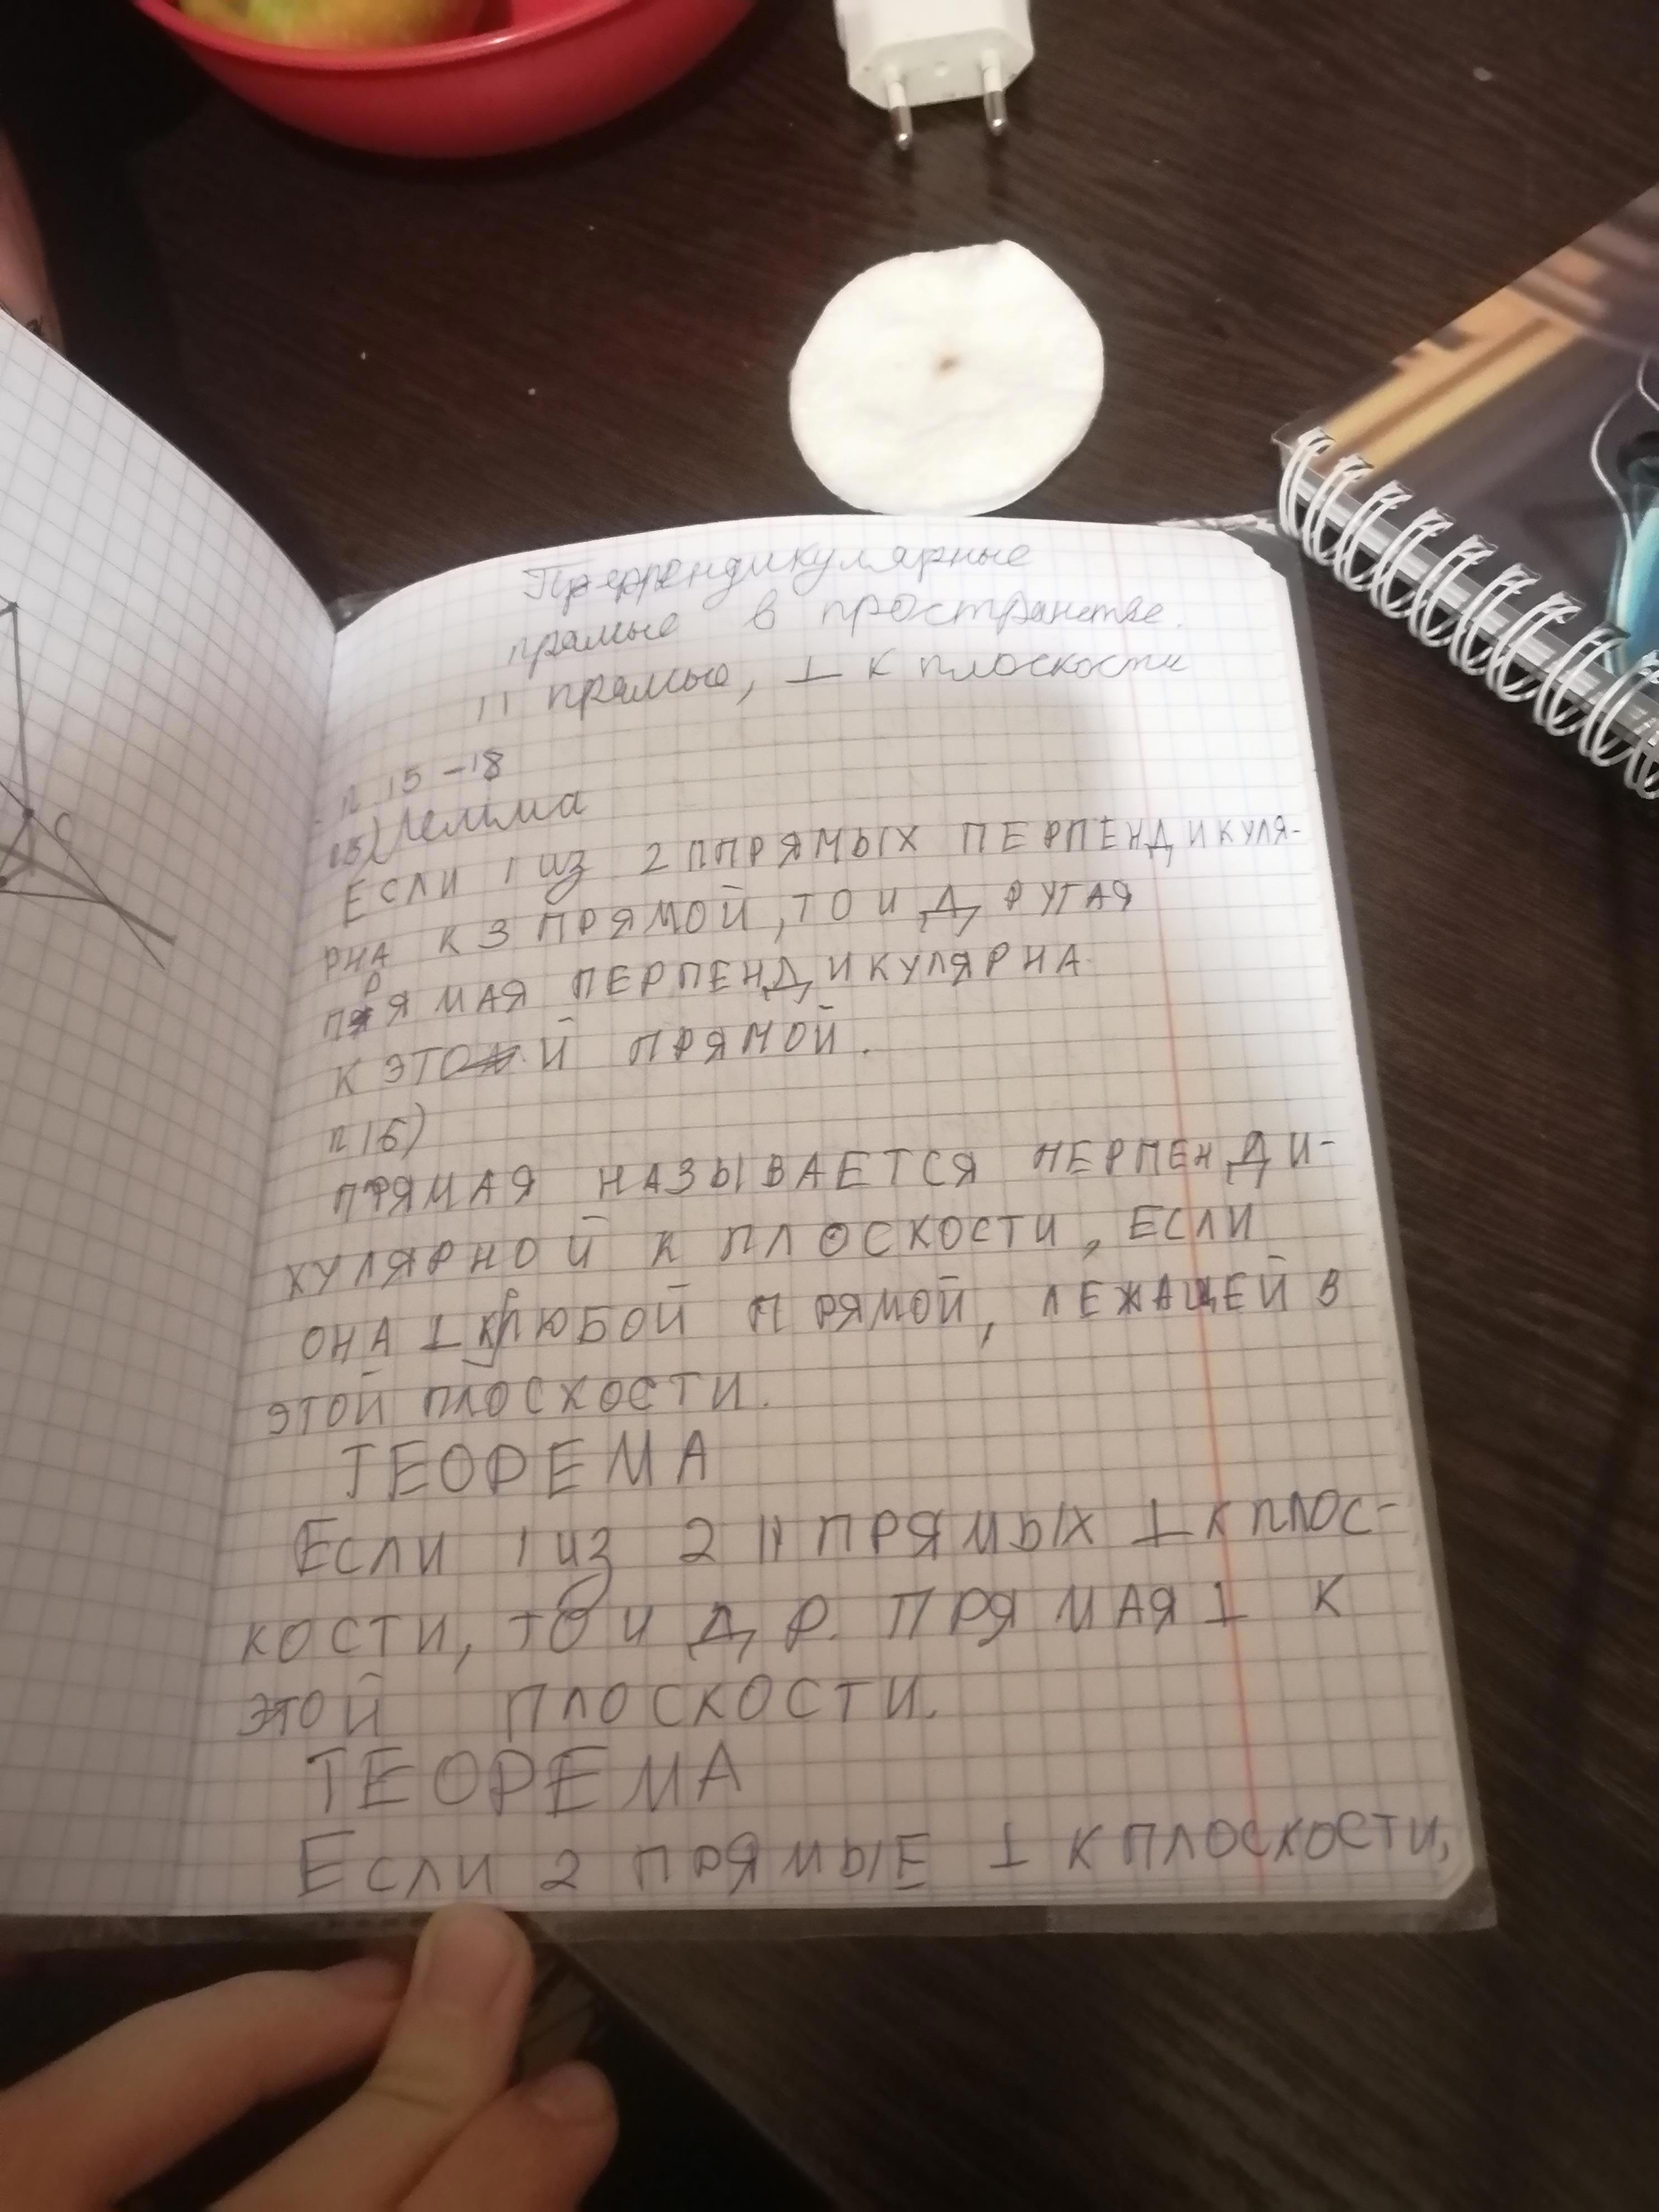 Перпендикулярные
прямые в пространстве.
|| прямые, ⊥ к плоскости
п 15-18
15) Лемма
ЕСЛИ 1 из 2 ППРЯМЫХ ПЕРПЕНДИКУЛЯ-
РНА К 3 ПРЯМОЙ, ТО И ДРУГАЯ
ПРЯМАЯ ПЕРПЕНДИКУЛЯРНА
К ЭТОЙ ПРЯМОЙ.
п16)
ПРЯМАЯ НАЗЫВАЕТСЯ ПЕРПЕНДИ-
КУЛЯРНОЙ К ПЛОСКОСТИ, ЕСЛИ
ОНА ⊥ К ЛЮБОЙ ПРЯМОЙ, ЛЕЖАЩЕЙ В
ЭТОЙ ПЛОСКОСТИ.
ТЕОРЕМА
ЕСЛИ 1 ИЗ 2 || ПРЯМЫХ ⊥ К ПЛОС-
КОСТИ, ТО И ДР. ПРЯМАЯ ⊥ К
ЭТОЙ ПЛОСКОСТИ.
ТЕОРЕМА
ЕСЛИ 2 ПРЯМЫЕ ⊥ К ПЛОСКОСТИ,
C